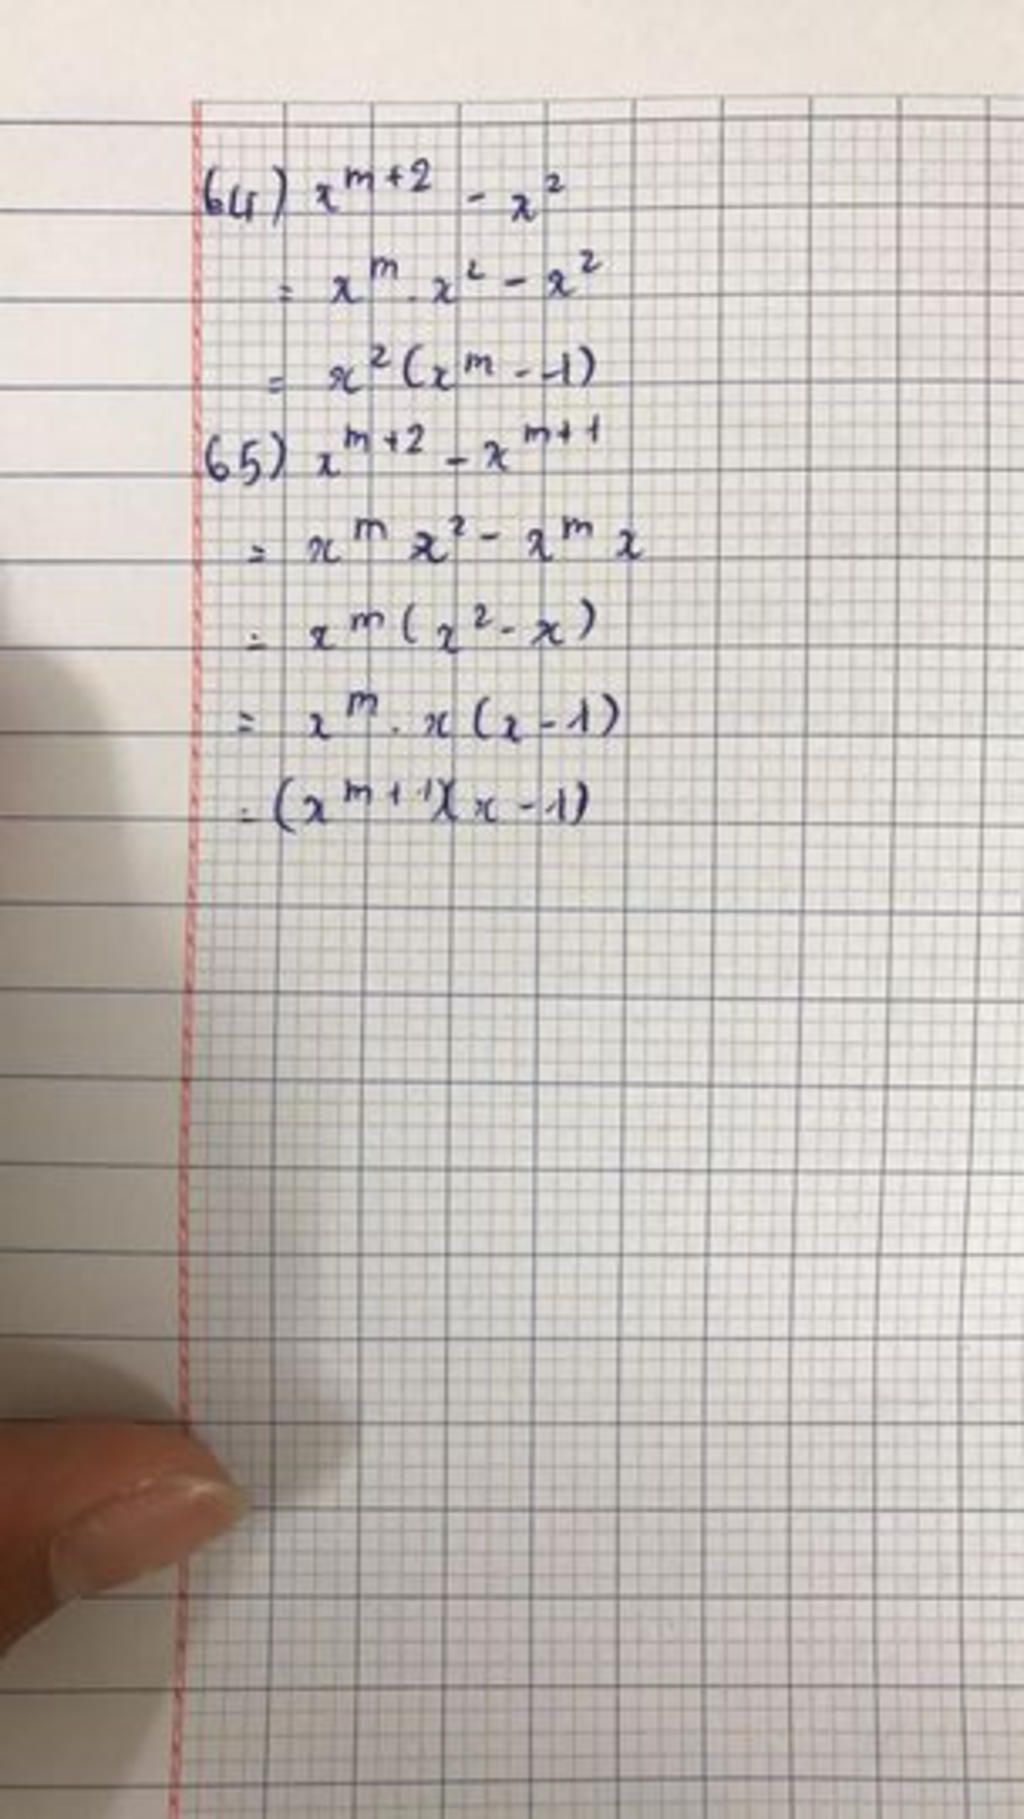 64) x^{m+2} - x^2
= x^m . x^2 - x^2
= x^2 (x^m - 1)
65) x^{m+2} - x^{m+1}
= x^m x^2 - x^m x
= x^m (x^2 - x)
= x^m . x (x - 1)
= (x^{m+1})(x - 1)